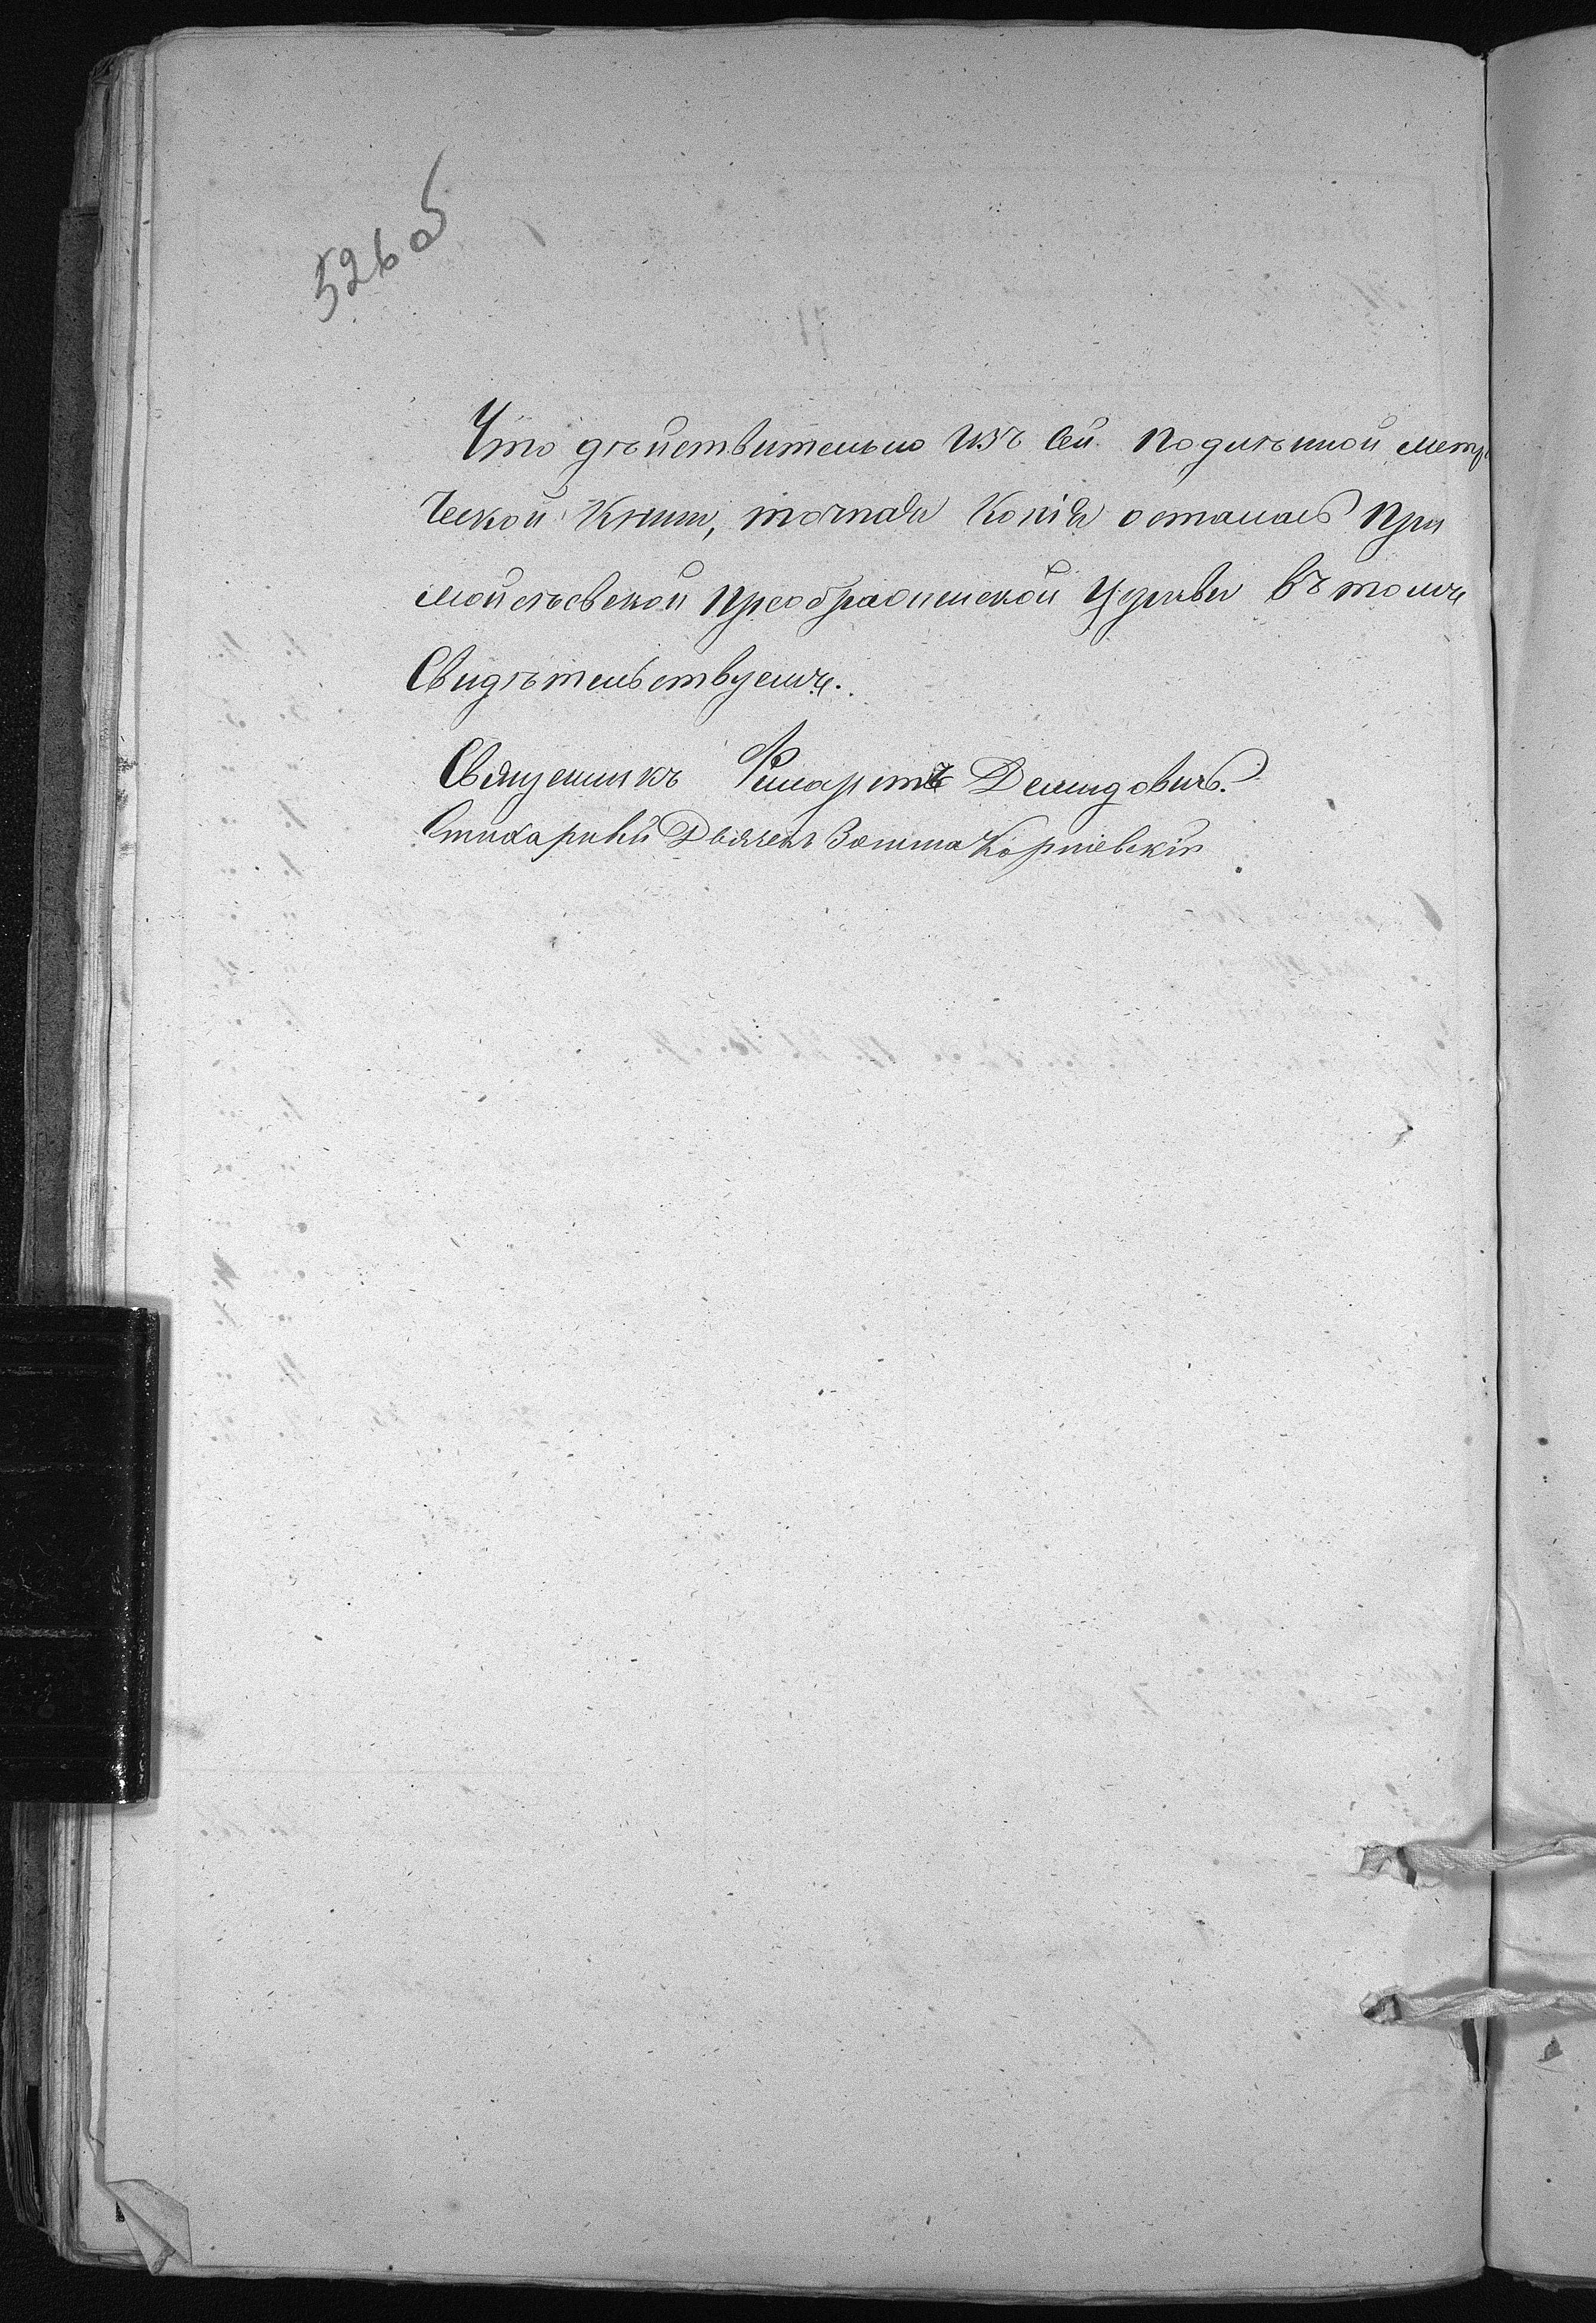 526об
Что дѣйствительно изъ сей подлѣнной метри
ческой книги, точная копія осталась при
Мойсѣевской Преображенской Церкви въ томъ
Свидѣтельствуемъ.
Священникъ Филаретъ Демидовичъ.
Стихарный Дьячекъ Корніевскій